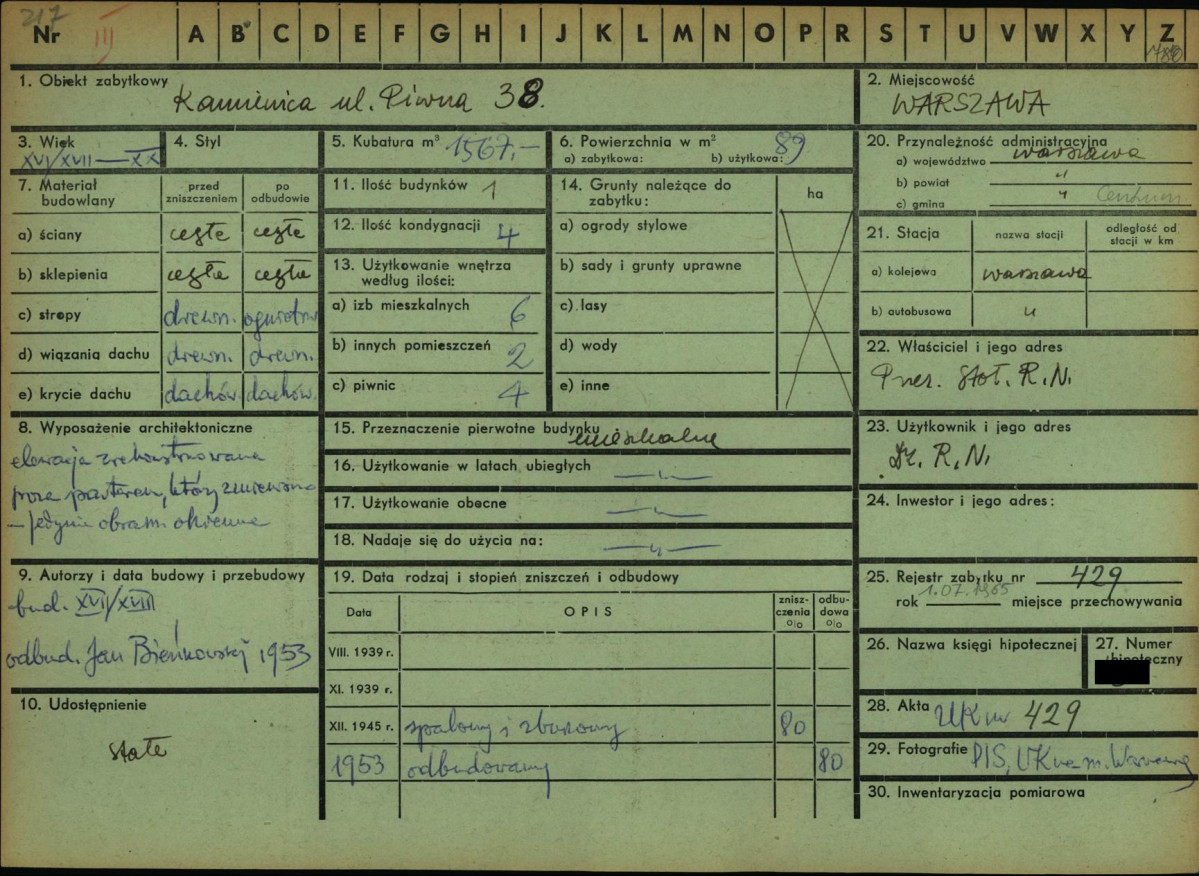 217
Nr III A B C D E F G H I J K L M N O P R S T U V W X Y Z
1. Obiekt zabytkowy Kamienica ul. Piwna 38.
2. Miejscowość
WARSZAWA
3. Wiek
XVI/XVII — XX
4. Styl
5. Kubatura m³ 1567,-
6. Powierzchnia w m² 89
a) zabytkowa: b) użytkowa:
20. Przynależność administracyjna
a) województwo warszawa
b) powiat "
c) gmina " Centrum
7. Materiał budowlany
przed zniszczeniem
po odbudowie
a) ściany cegła cegła
b) sklepienia cegła cegła
c) stropy drewn. ogniotrw
d) wiązania dachu drewn. drewn.
e) krycie dachu dachów. dachów.
11. Ilość budynków 1
12. Ilość kondygnacji 4
13. Użytkowanie wnętrza
według ilości:
a) izb mieszkalnych 6
b) innych pomieszczeń 2
c) piwnic 4
14. Grunty należące do
zabytku:
ha
a) ogrody stylowe
b) sady i grunty uprawne
c) lasy
d) wody
e) inne
21. Stacja
nazwa stacji
odległość od
stacji w km
a) kolejowa warszawa
b) autobusowa "
22. Właściciel i jego adres
Prez. Stoł. R.N.
8. Wyposażenie architektoniczne
elewacja zrekonstruowana
poza parterem, który zmieniono
– jedynie obram. okienne
15. Przeznaczenie pierwotne budynku mieszkalne
16. Użytkowanie w latach ubiegłych — " —
17. Użytkowanie obecne — " —
18. Nadaje się do użycia na: — " —
23. Użytkownik i jego adres
Dz. R.N.
24. Inwestor i jego adres:
9. Autorzy i data budowy i przebudowy
bud. XVI/XVII
odbud. Jan Bieńkowski 1953
10. Udostępnienie
stałe
19. Data rodzaj i stopień zniszczeń i odbudowy
Data
OPIS
znisz-
czenia
%
odbu-
dowa
%
VIII. 1939 r.
XI. 1939 r.
XII. 1945 r. spalony i zburzony 80
1953 odbudowany 80
25. Rejestr zabytku nr 429
rok 1.07.1965 miejsce przechowywania
26. Nazwa księgi hipotecznej
27. Numer
hipoteczny
28. Akta UKnr 429
29. Fotografie PIS, UK
30. Inwentaryzacja pomiarowa